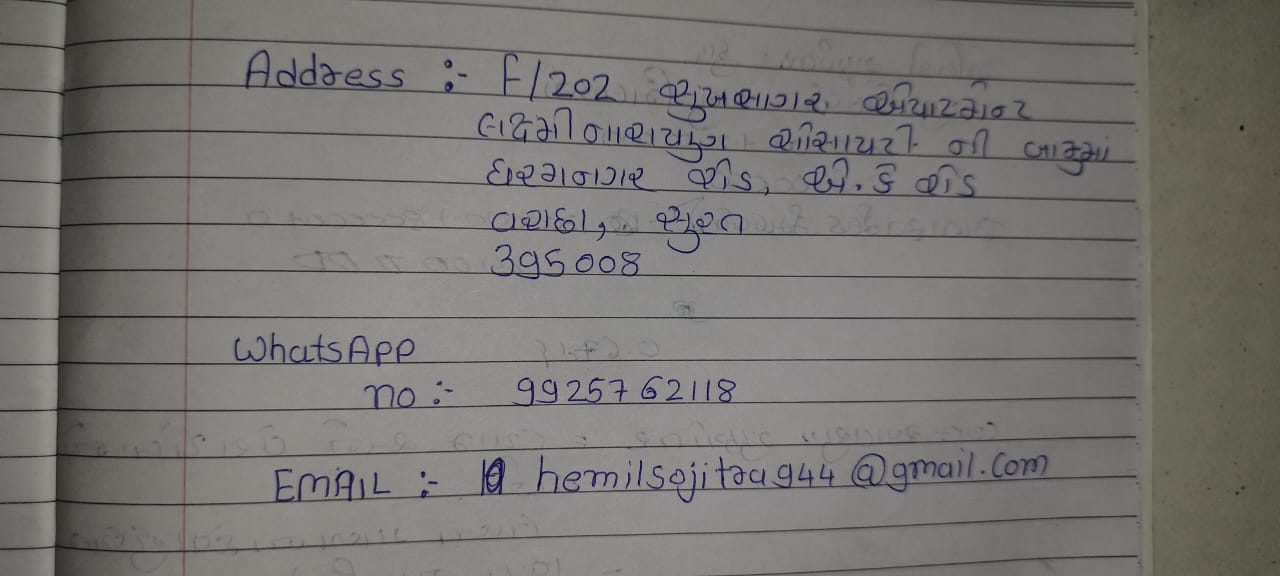 Address :- F/202 સુખસાગર એપાર્ટમેન્ટ
લક્ષ્મી નારાયણ સોસાયટી ની બાજુમાં
ધરમનગર રોડ, એ. કે રોડ
વરાછા, સુરત
395008
WhatsApp
no :- 9925762118
EMAIL :- hemilsojitra944@gmail.com